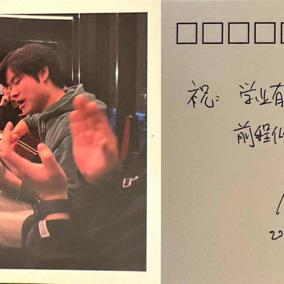 祝：学业有
前程似
20